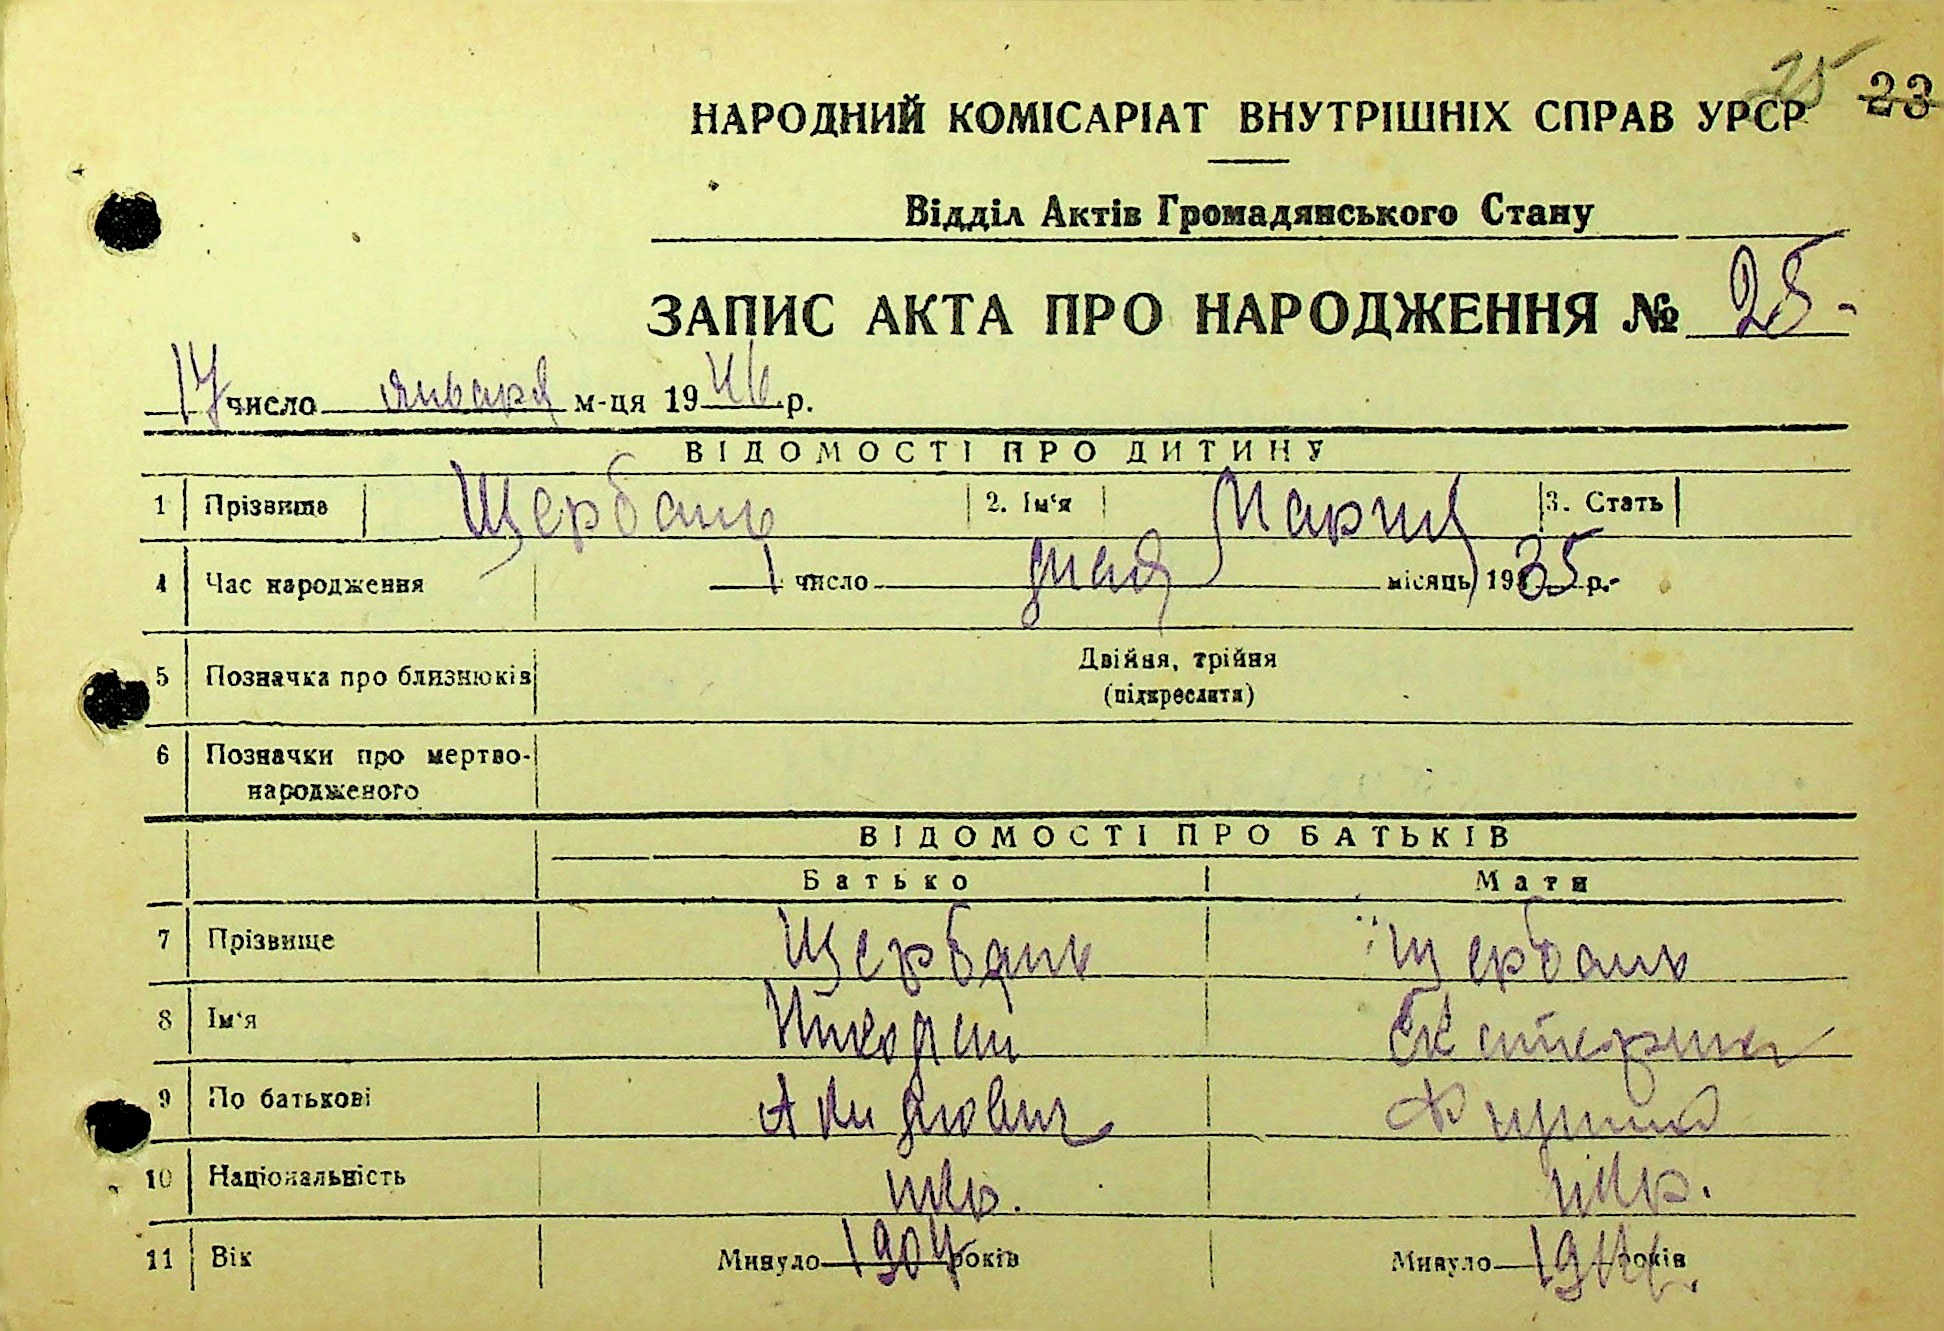 25 23
НАРОДНИЙ КОМІСАРІАТ ВНУТРІШНІХ СПРАВ УРСР
Відділ Актів Громадянського Стану
ЗАПИС АКТА ПРО НАРОДЖЕННЯ № 25-
17 число января м-ця 1946 р.
ВІДОМОСТІ ПРО ДИТИНУ
1 Прізвище Щербань 2. Ім'я Мария 3. Стать
4 Час народження 1 число мая місяць 1935 р.
5 Позначка про близнюків Двійня, трійня
(підкреслити)
6 Позначки про мертво-
народженого
ВІДОМОСТІ ПРО БАТЬКІВ
Батько Мати
7 Прізвище Щербань Щербань
8 Ім'я Николай Екатерина
9 По батькові
10 Національність укр. укр.
11 Вік Минуло 1904 років Минуло років